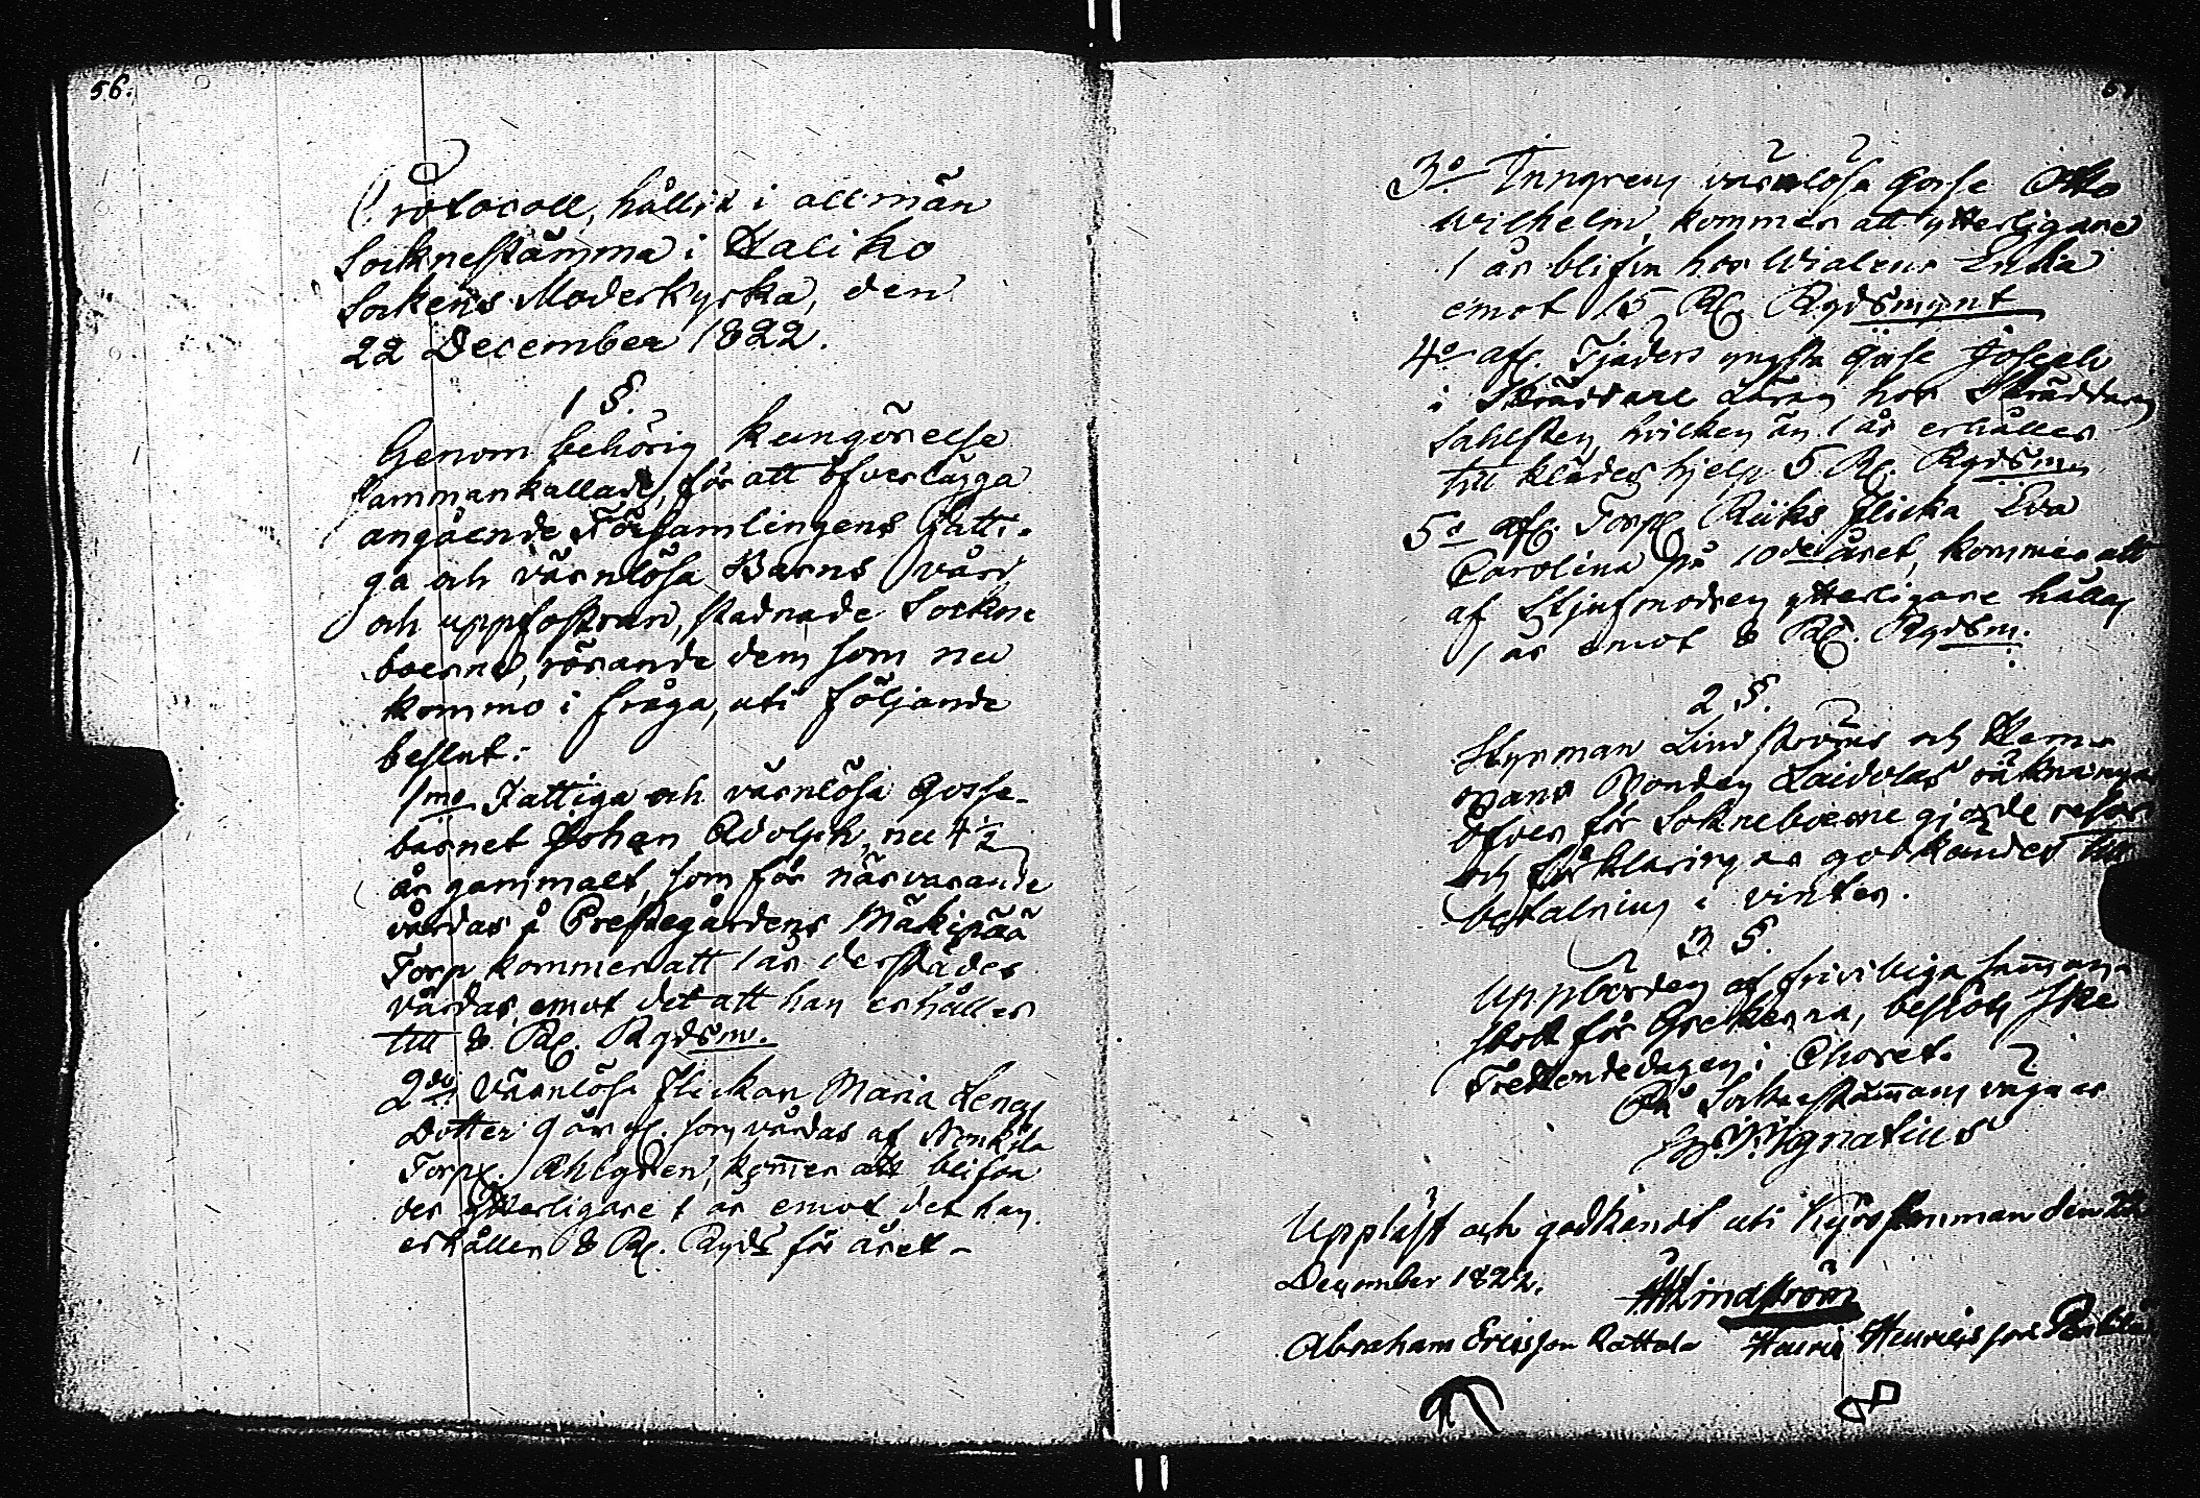 56.
Protocoll, hållit i allmän
Socknestämma i Haliko
Sockens Moderkyrka, den
22 December 1822.
1 §.
Genom behörig kungörelse
sammankallade, för att öfverlägga
angående Församlingens Fatti-
ga och värnlösa Barns vård
och uppfostran, stadnade Sockne
boerne, rörande dem som nu
kommo i fråga, uti följande
beslut:
1mo Fattiga och värnlösa Gosse-
barnet Johan Adolph, nu 4 1/2
år gammalt, som för närvarande
vårdas å Prestegårdens Mäkipää
Torp, kommer att 1 år derstädes
vårdas, emot det att han erhåller
till 8 Rd. Rgdsm.
2do Värnlösa Flickan Maria Lenas
Dotter 9 år gl. som vårdas af
Torp. Ahlgren, kommer att blifva
der ytterligare 1 år emot det han
erhåller 8 Rd. Rgds för året-
3o värnlösa Gosse Otto
Wilhelm, kommer att ytterligare
1 år blifva hos Enka
emot 15 Rd. Rgdsmynt
4o afl. Tjäders yngsta Gosse Joseph
i Skräddare Läran hos Skräddaren
Sahlsten, hvilken än 1 år erhåller
till kläders hjelp 5 Rd. Rgdsm
5o afl. Torp. Riiks flicka Eva
Carolina på 10de året, kommer att
af Stjufmodren ytterligare hållas
1 år emot 8 Rd. Rgdsm.
2 §.
Styrman Lindströms och Hem-
mans Bonden Laidolas räkningar
öfver för Sokneboerne gjorde resor
och förklaringar godkändes till
betalning i vinter.
3 §.
Uppbörden af frivilliga samman-
skott för Grekerna, beslöts ske
Trettondedagen i Choret.
På Socknestämmans vägnar
Ignatius
Uppläst och godkändt uti Kyrkostämman den 22
December 1822.
Lindström
Abraham Ericsson Rattala Henric Henricsson